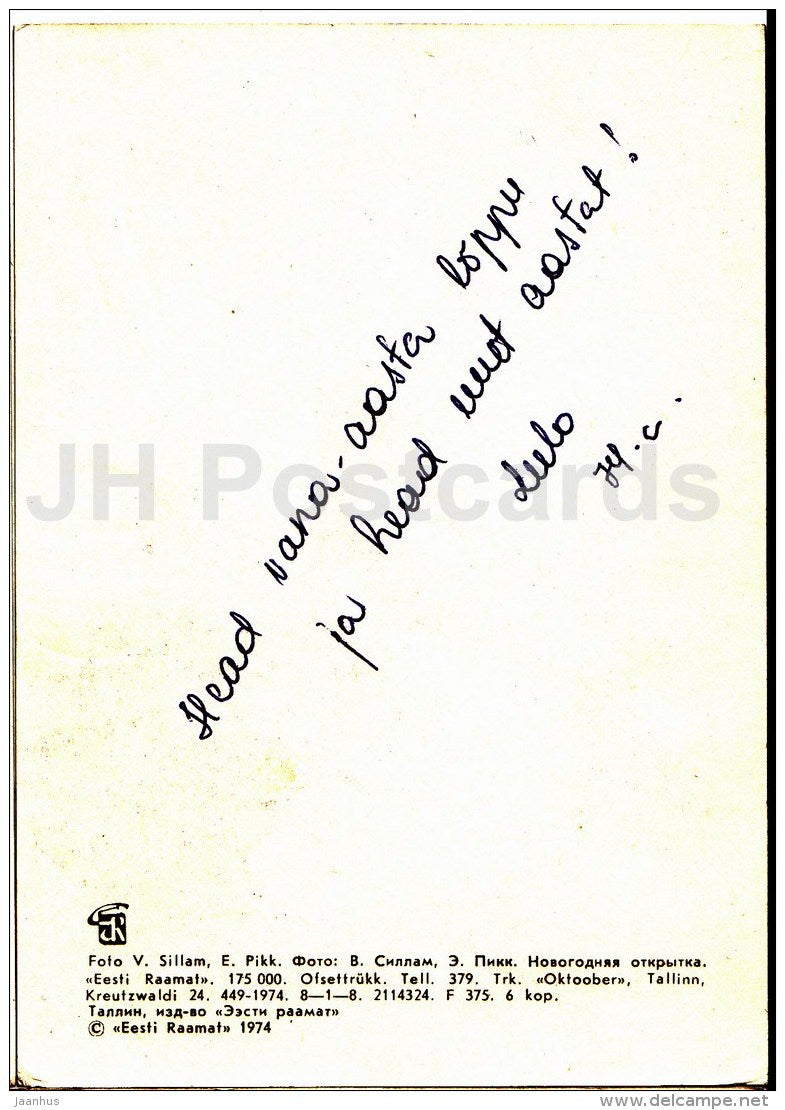 Head vana-aasta lõppu
ja head uut aastat!
JH Postcards
Foto V. Sillam, E. Pikk. Фото: В. Силлам, Э. Пикк. Новогодняя открытка.
«Eesti Raamat». 175 000. Ofsettrükk. Tell. 379. Trk. «Oktoober», Tallinn,
Kreutzwaldi 24. 449-1974. 8—1—8. 2114324. F 375. 6 kop.
Таллин, изд-во «Ээсти раамат»
© «Eesti Raamat» 1974
jaanhus
www.delcampe.net